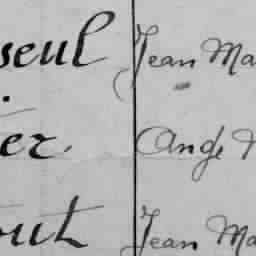 seul Jean Ma
er. Ange
out Jean Ma